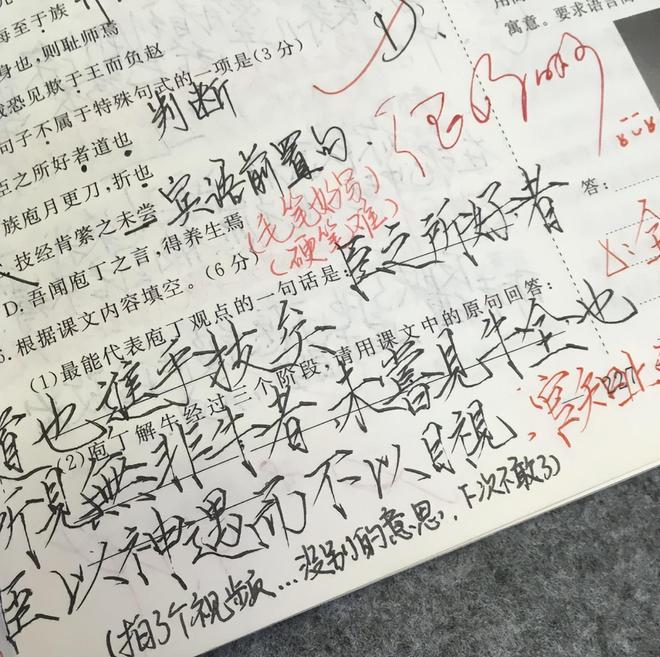 每至于族
身也,则耻师焉
诚恐见欺于王而负赵
句子不属于特殊句式的一项是(3分)
判断
臣之所好者道也
族庖月更刀,折也
宾语前置句.
技经肯綮之未尝
D.吾闻庖丁之言,得养生焉
(毛笔好写)
(硬笔难)
根据课文内容填空。(6分)
(1)最能代表庖丁观点的一句话是:
臣之所好者
道也進乎技矣
(2)庖丁解牛经过三个阶段,请用课文中的原句回答:
所見無非牛者 未嘗見牛全也
臣以神遇而不以目視.
(拍了个视频...没别的意思,下次不敢了)
寓意。要求语言简
答: